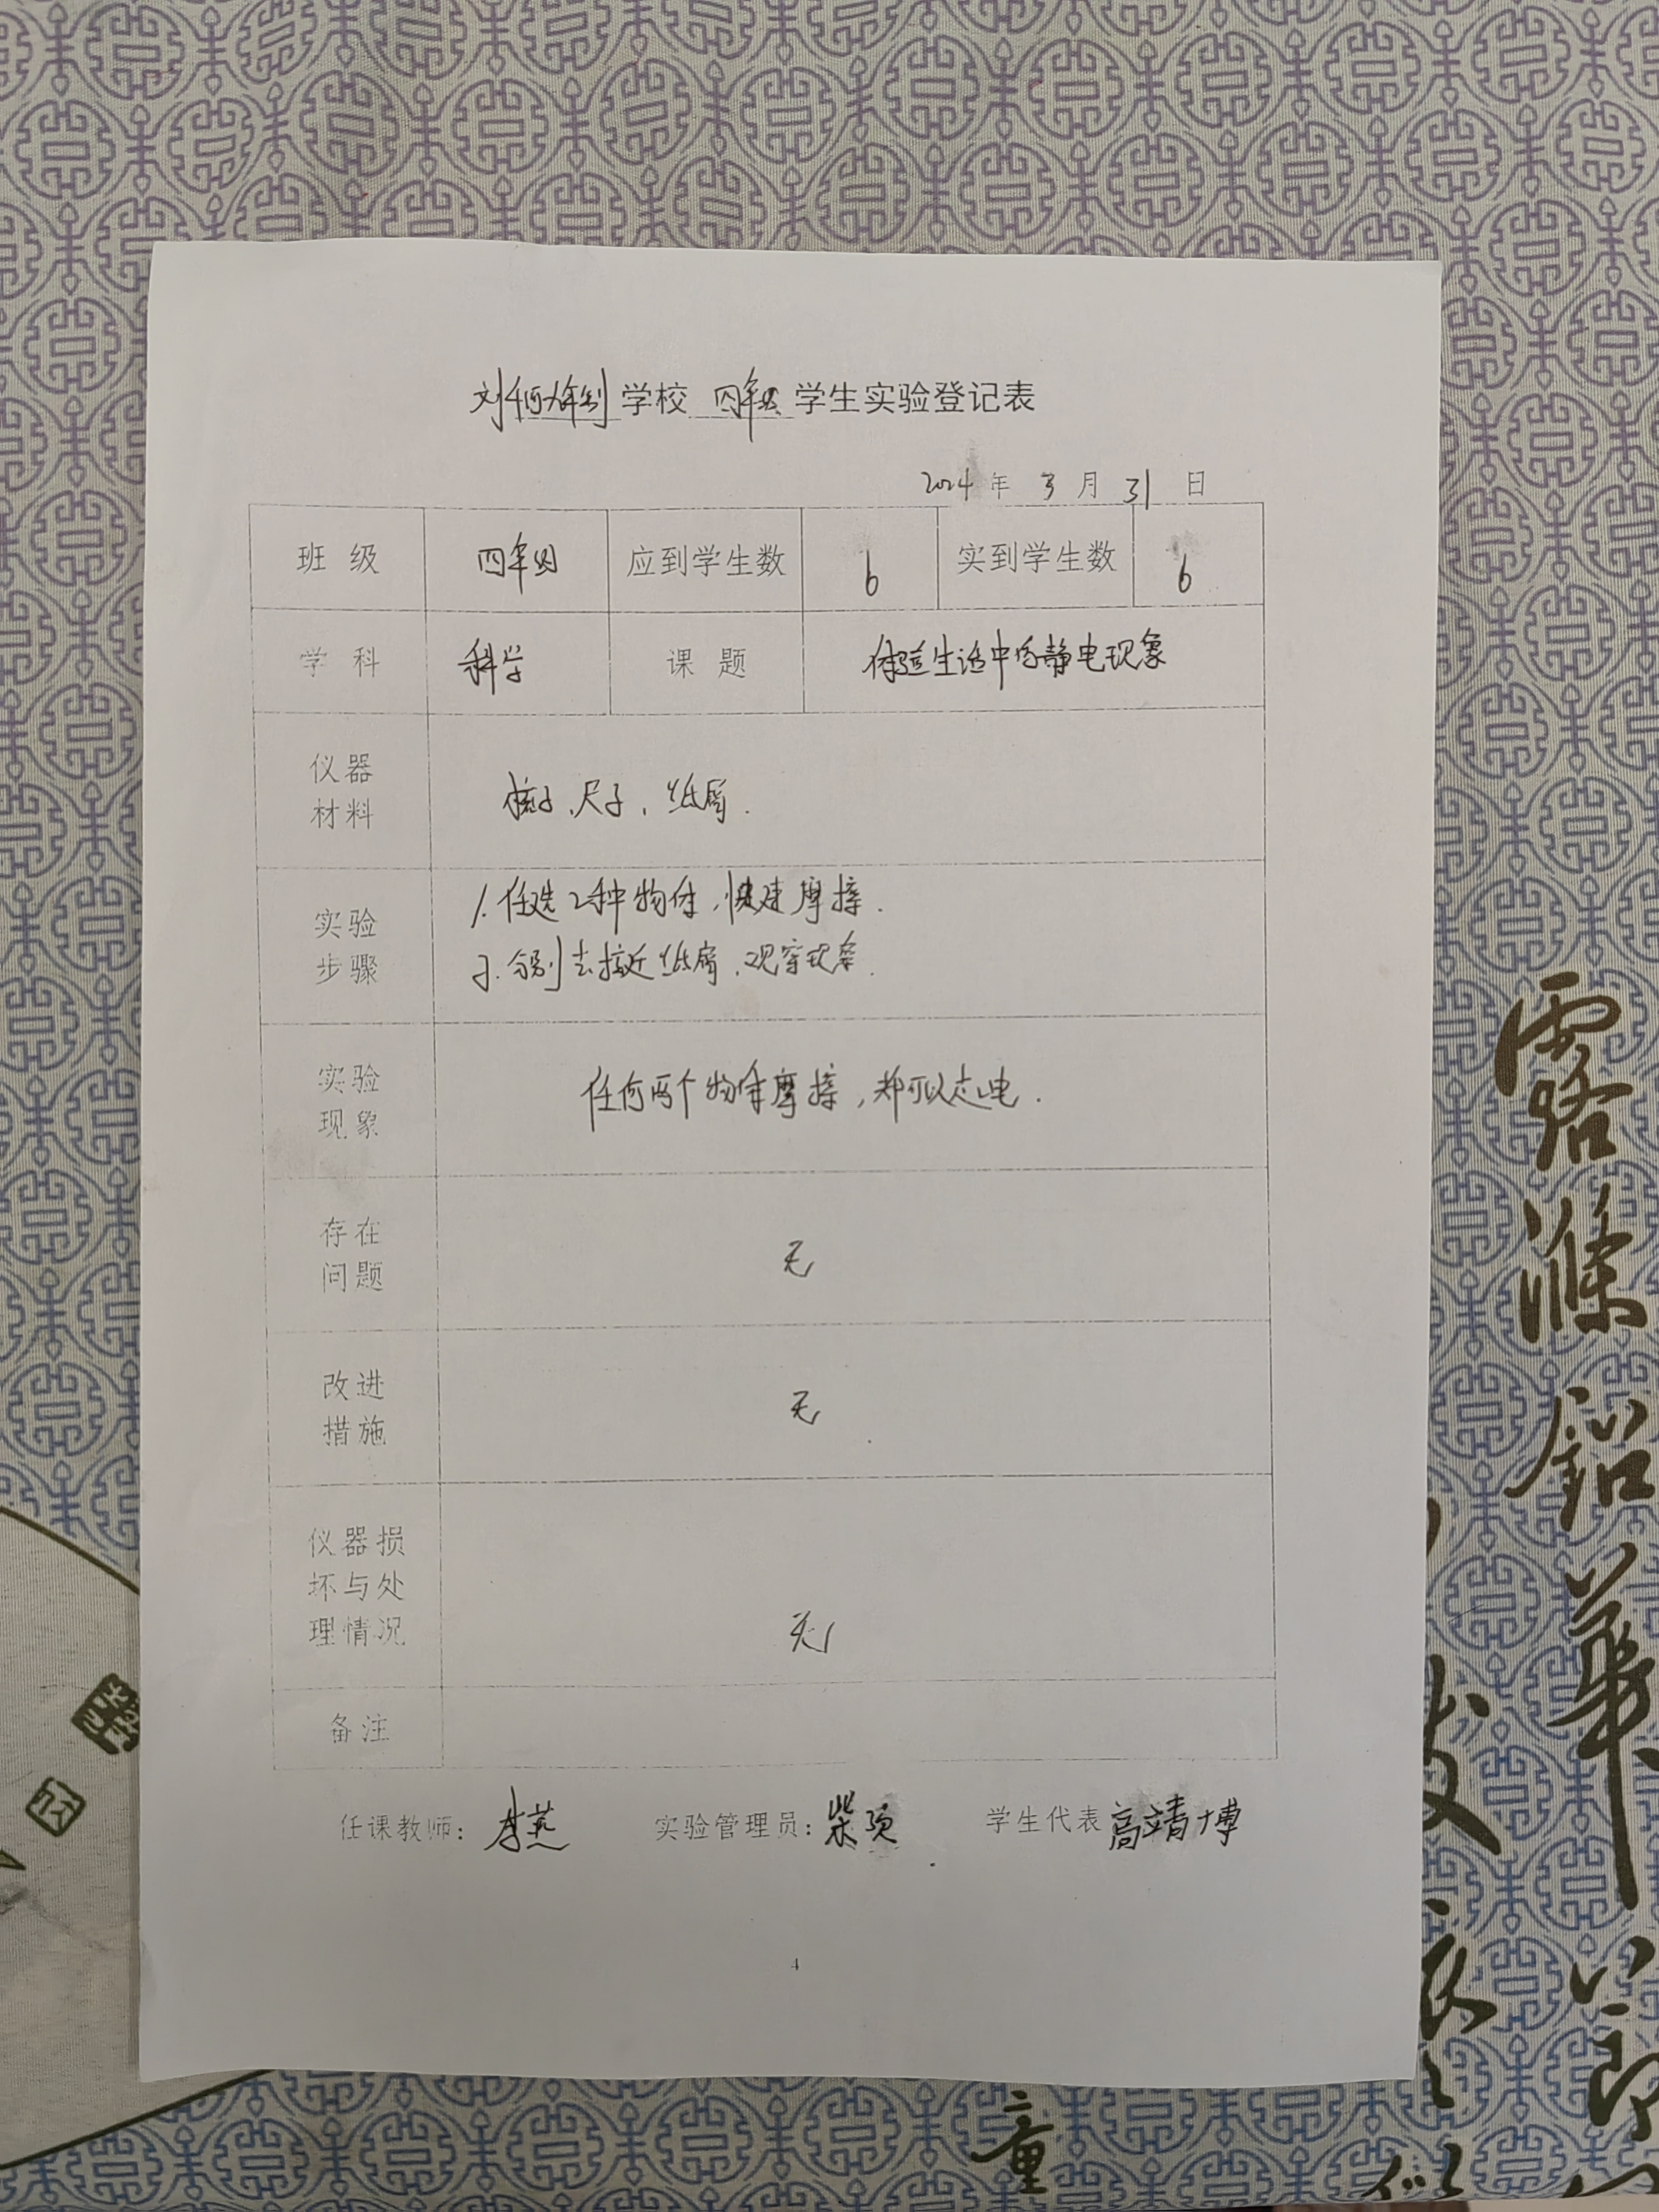 刘佰九年制学校 四年级 学生实验登记表
2024 年 3 月 31 日
班 级 四年级 应到学生数 6 实到学生数 6
学 科 科学 课 题 体验生活中的静电现象
仪器
材料
梳子、尺子、纸屑.
实验
步骤
1. 任选2种物体,快速摩擦.
2. 分别去接近纸屑,观察现象.
实验
现象
任何两个物体摩擦,都可以起电.
存在
问题
无
改进
措施
无
仪器损
坏与处
理情况
无
备注
任课教师: 李燕 实验管理员: 柴 学生代表 高靖博
4
露
滌
鉛
華
節
童